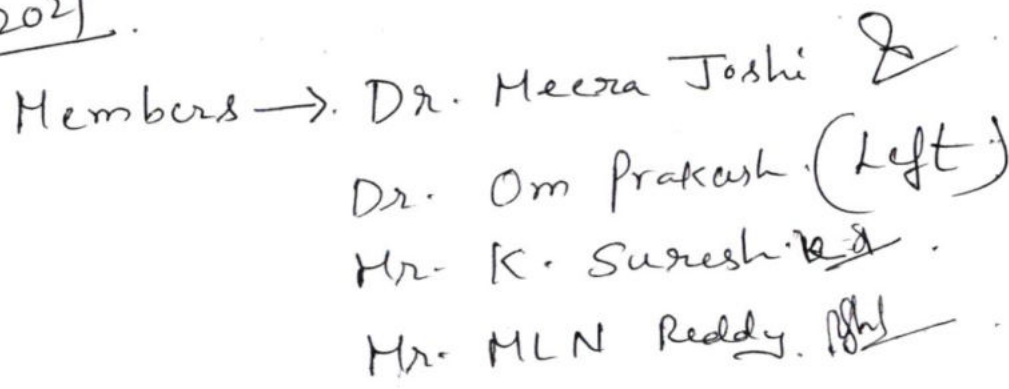 2021.
Members → Dr. Meera Joshi
Dr. Om Prakash. (Left)
Mr. K. Suresh.
Mr. MLN Reddy.